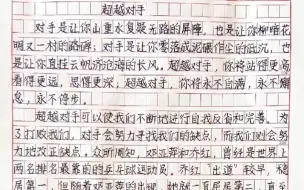 超越对手
对手是让你山重水复疑无路的屏障，也是让你柳暗花
明又一村的路源；对手是让你零落成泥碾作尘的低沉，也
是让你直挂云帆济沧海的长风。超越对手，你将站得更高
看得更远，思得更深；超越对手，你将永不自满，永不懈
怠，永不停步。
超越对手可以使我们不断地进行自我反省和完善。为
了打败我们，对手会努力寻找我们的缺点，而我们对会努
力地改正缺点，众所周知，邓亚萍和乔红，曾经是世界上
两名排名最靠前的乒乓球运动员，乔红“出道”较早，稳
居第一，但随着邓亚萍的出现，她就一直屈居第二，直